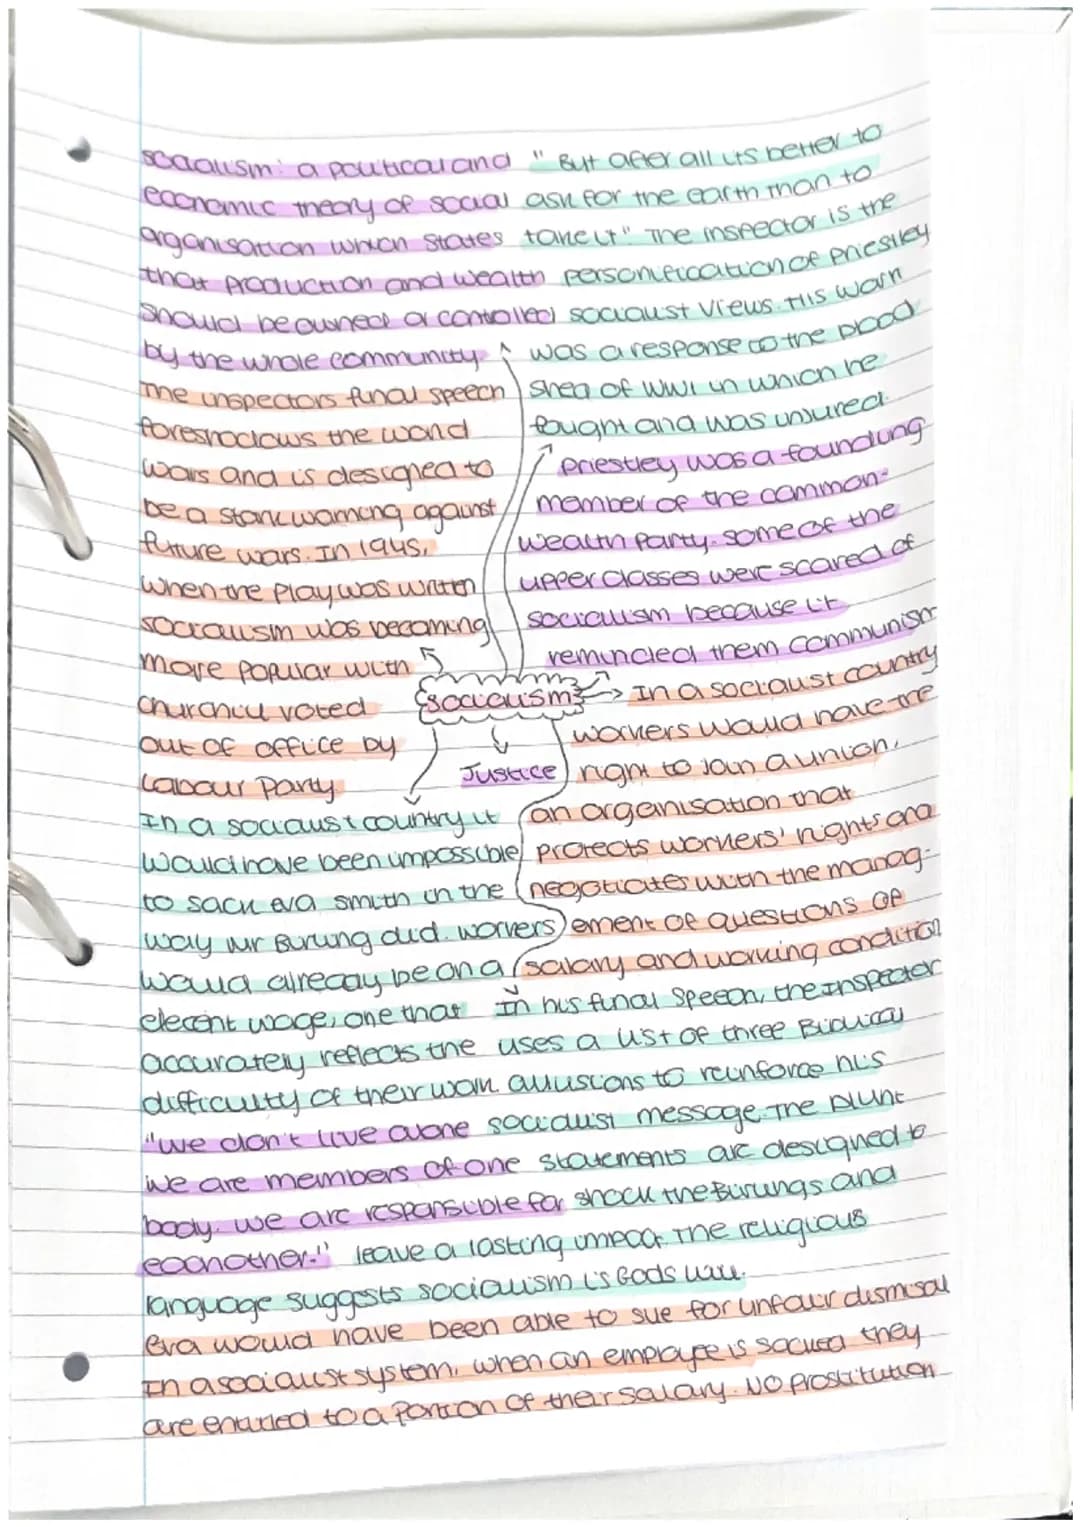 socialism: a political and
economic theory of social
organisation which states
that production and wealth
should be owned or controlled
by the whole community
"But after all its better to
ask for the earth than to
take it" The inspector is the
personification of Priestley
socialist views. His work
was a response to the blood
shed of WW1 in which he
fought and was injured.
The inspectors final speech
foreshadows the world
wars and is designed to
be a stark warning against
future wars. In 1945,
when the play was written
socialism was becoming
more popular with
churchill voted
out of office by
Labour Party
Priestley was a founding
member of the common-
wealth party. some of the
upper classes were scared of
socialism because it
reminded them communism
socialism
Justice
In a socialist country
workers would have the
right to join a union,
an organisation that
protects workers' rights and
negotiates with the manag-
ement of questions of
salary and working condition
In a socialist country it
would have been impossible
to sack eva smith in the
way mr Burling did. workers
would already be on a
decent wage, one that
accurately reflects the
difficulty of their work.
"we don't live alone
we are members of one
body. we are responsible for
eachother."
In his final speech, the Inspector
uses a list of three Biblical
allusions to reinforce his
socialist message. The blunt
statements are designed to
shock the Birlings and
leave a lasting impact The religious
language suggests socialism is Gods will.
Eva would have been able to sue for unfair dismisal
In a socialist system, when an employee is sacked they
are entitled to a portion of their salary. NO prostitution